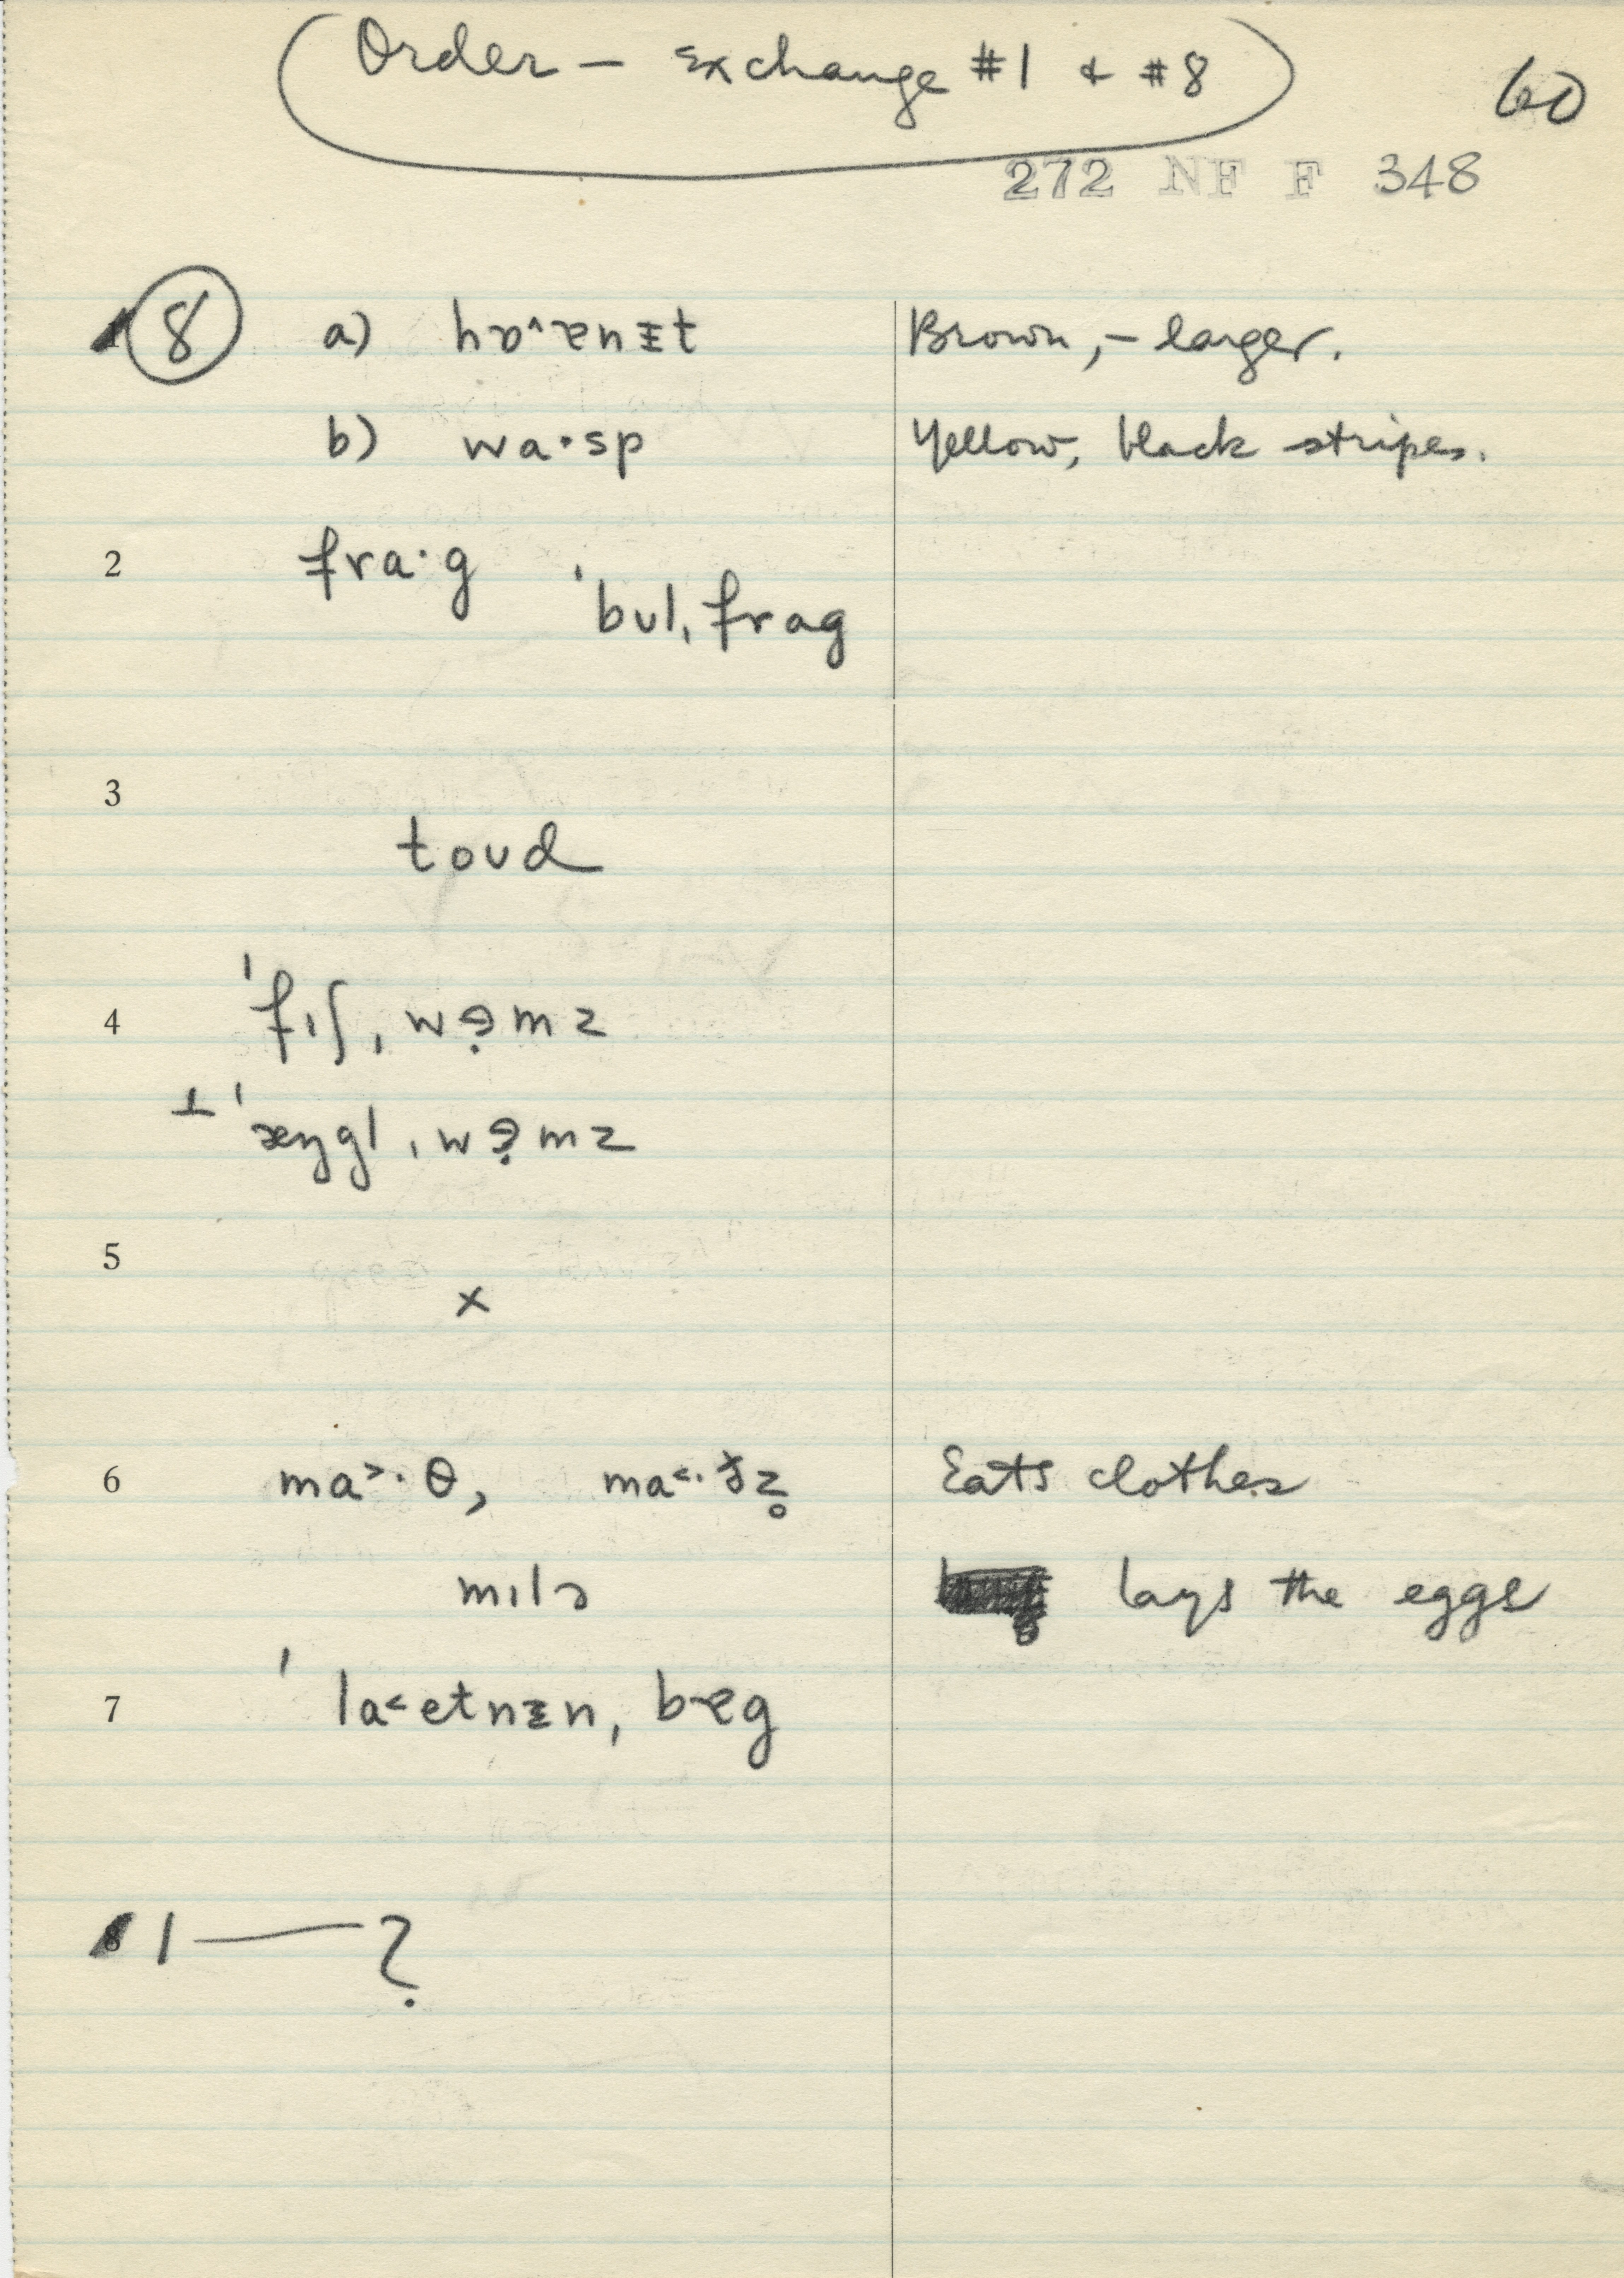 Order — Exchange #1 & #8
60
272 NF F 348
8 a) Brown, – larger.
b) wa·sp Yellow, black stripes.
2 fra·g
ˈbʊlˌfrag
3
toʊd
4 ˈfɪʃˌwɚmz
⊥ ˈæŋglˌwɚmz
5
x
6 ma˃·θ, ma˂·ðz̥ Eats clothes
mɪlɚ lays the eggs
7
1 — ?